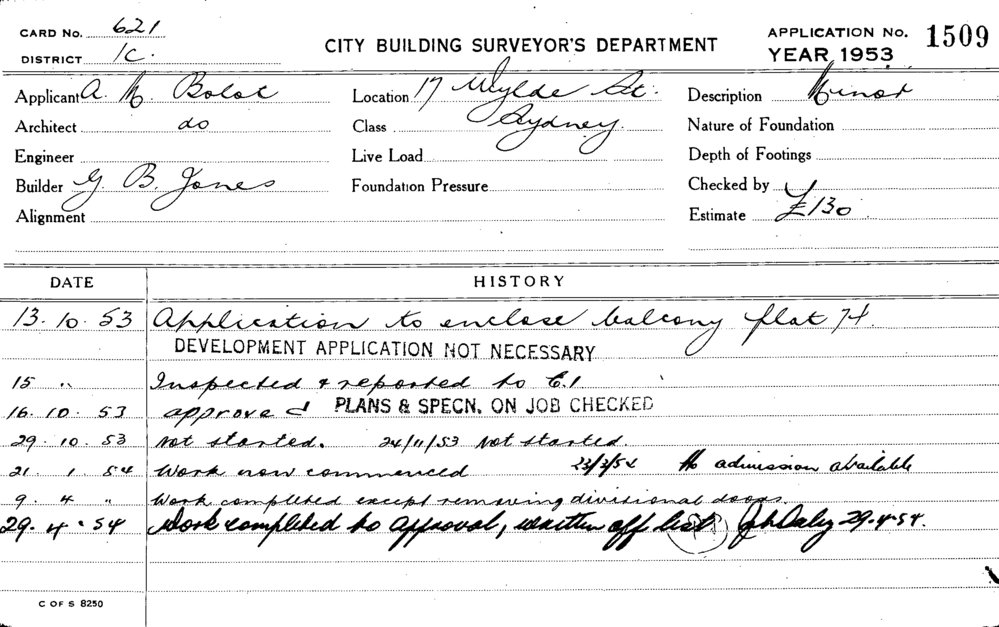 CARD No. 621
DISTRICT 1C.
CITY BUILDING SURVEYOR'S DEPARTMENT
APPLICATION No. 1509
YEAR 1953
Applicant A. M. Bolot
Architect do
Engineer
Builder G. B. Jones
Alignment
Location 17 Wylde St.
Class Sydney.
Live Load
Foundation Pressure
Description Minor
Nature of Foundation
Depth of Footings
Checked by
Estimate £130
DATE HISTORY
13. 10. 53 Application to enclose balcony flat 74.
DEVELOPMENT APPLICATION NOT NECESSARY
15 " Inspected & reported to C.I
16. 10. 53 approved PLANS & SPECN. ON JOB CHECKED
29. 10. 53 Not started. 24/11/53 Not started.
21 1 54 Work now commenced 23/3/54 No admission available
9. 4 " Work completed except removing divisional doors.
29. 4. 54 Work completed to approval, written off list. 29.4.54.
C OF S 8250